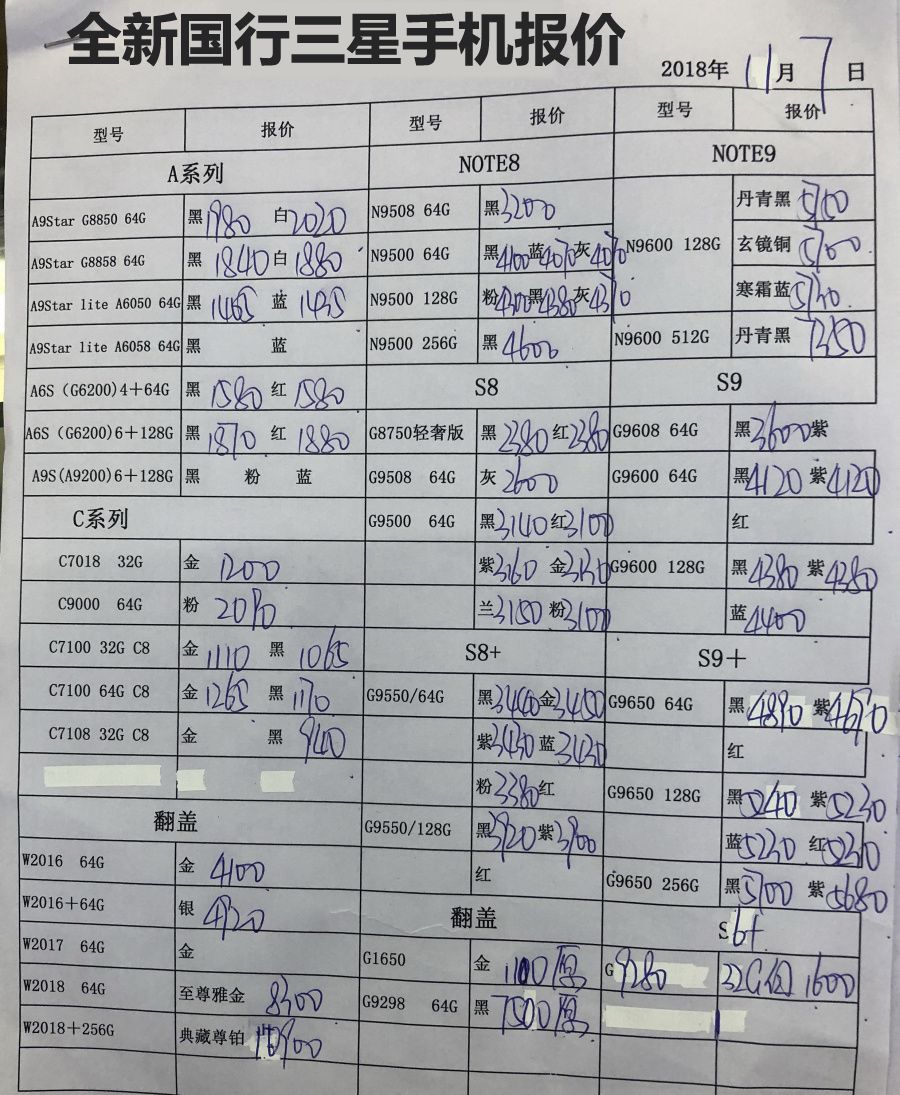 全新国行三星手机报价
2018年 11月 7 日
型号 报价 型号 报价 型号 报价
A系列 NOTE8 NOTE9
A9Star G8850 64G 黑 1980 白 2020 N9508 64G 黑 3200 N9600 128G 丹青黑 5150
A9Star G8858 64G 黑 1840 白 1880 N9500 64G 黑 4100 蓝 4070 灰 4070 玄镜铜 5100
A9Star lite A6050 64G 黑 1465 蓝 1455 N9500 128G 粉 4300 黑 4380 灰 4370 寒霜蓝 5130
A9Star lite A6058 64G 黑 蓝 N9500 256G 黑 4600 N9600 512G 丹青黑 7350
A6S (G6200)4+64G 黑 1580 红 1580 S8 S9
A6S (G6200)6+128G 黑 1870 红 1880 G8750轻奢版 黑 2380 红 2380 G9608 64G 黑 3600 紫
A9S(A9200)6+128G 黑 粉 蓝 G9508 64G 灰 2600 G9600 64G 黑 4120 紫 4120
C系列 G9500 64G 黑 3140 红 3100 红
C7018 32G 金 1200 紫 3160 金 3130 G9600 128G 黑 4380 紫 4380
C9000 64G 粉 2090 兰 3150 粉 3100 蓝 4400
C7100 32G C8 金 1110 黑 1065 S8+ S9+
C7100 64G C8 金 1265 黑 1170 G9550/64G 黑 3460 金 3450 G9650 64G 黑 4890 紫 4690
C7108 32G C8 金 黑 940 紫 3430 蓝 3430 红
粉 3380 红 G9650 128G 黑 5240 紫 5230
翻盖 G9550/128G 黑 3920 紫 3900 蓝 5230 红 5230
W2016 64G 金 4100 红 G9650 256G 黑 5700 紫 5680
W2016+64G 银 4920 翻盖 S6+
W2017 64G 金 G1650 金 1100 原 G9280 32G 1600
W2018 64G 至尊雅金 8300 G9298 64G 黑 7500 原
W2018+256G 典藏尊铂 10900